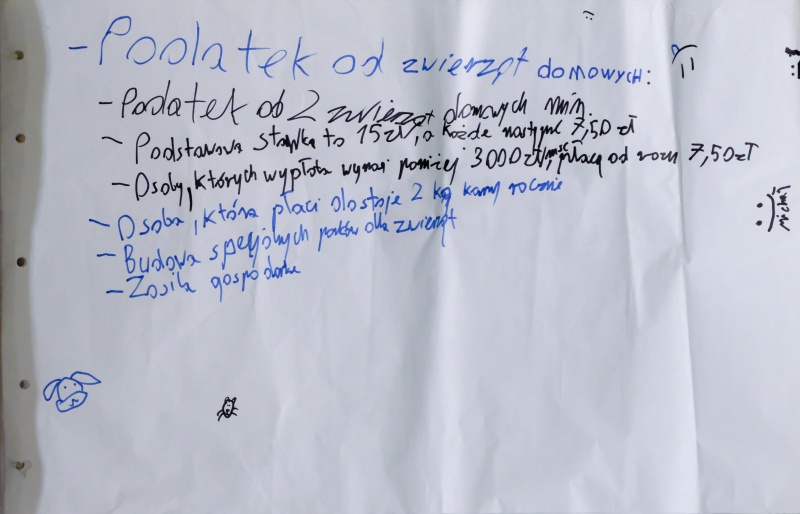 - Podatek od zwierząt domowych:
- Podatek od 2 zwierząt domowych min.
- Podstawowa stawka to 15zł, a każde następne 7,50 zł
- Osoby, których wypłata wynosi poniżej 3000zł/mieś, płacą od razu 7,50zł
- Osoba, która płaci dostaje 2 kg karmy rocznie
- Budowa specjalnych parków dla zwierząt
- Zasila gospodarkę